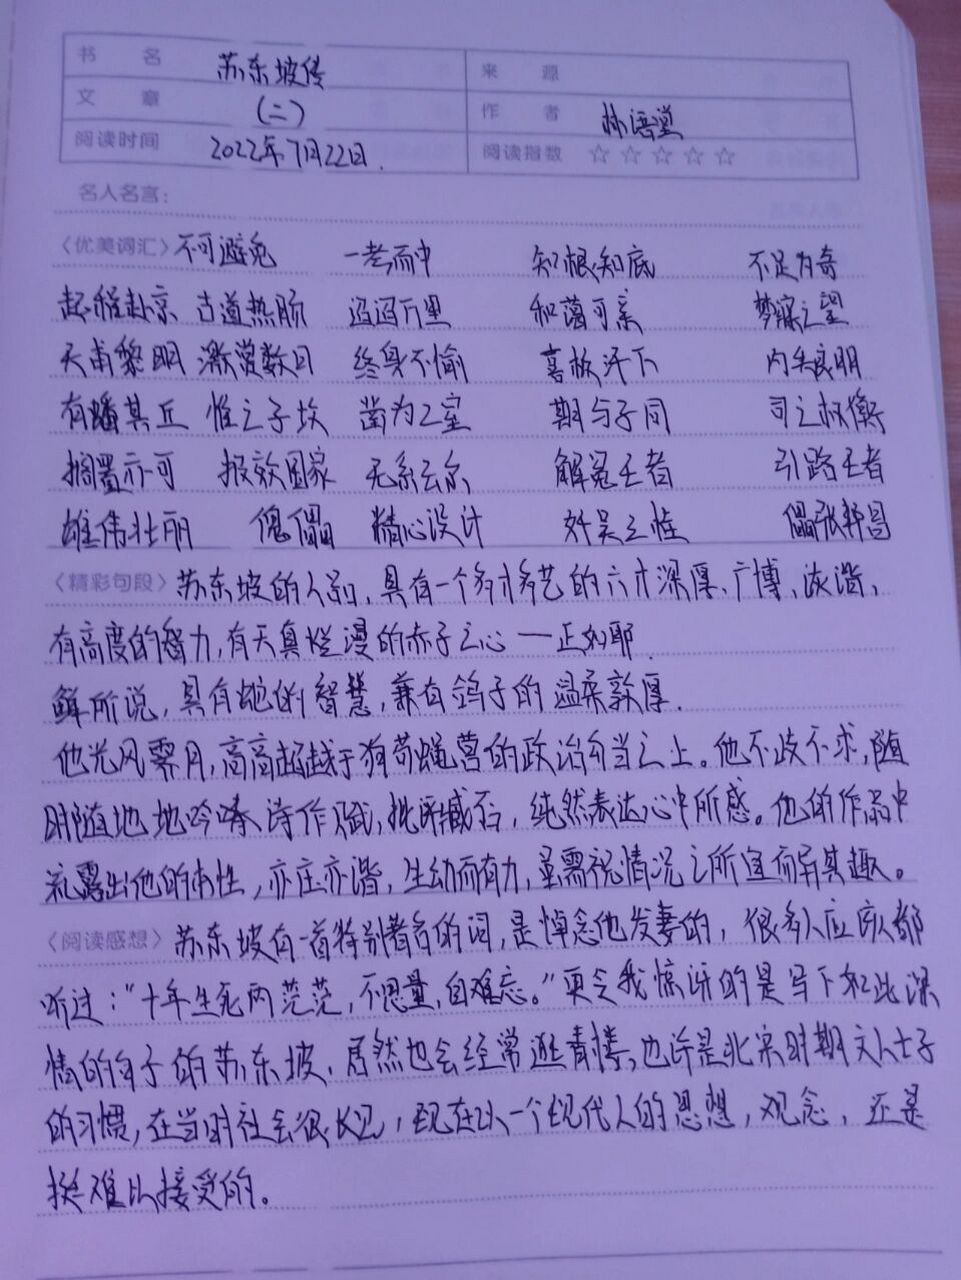 书 名 苏东坡传 来 源
文 章 (二) 作 者 林语堂
阅读时间 2022年7月22日. 阅读指数 ☆☆☆☆☆
名人名言:
〈优美词汇〉不可避免 一考而中 知根知底 不足为奇
起程赴京 古道热肠 迢迢万里 和蔼可亲 梦寐之望
天甫黎明 激赏数日 终身不愉 喜极汗下 内失良朋
有蟠其丘 惟之子坎 凿为之室 期与子同 司之权衡
搁置亦可 报效国家 无系云尔 解冤王者 引路王者
雄伟壮丽 傀儡 精心设计
〈精彩句段〉苏东坡的人品,具有一个多才多艺的六才深厚、广博、诙谐,
有高度的智力,有天真烂漫的赤子之心——正如耶
稣所说,具有蛇的智慧,兼有鸽子的温柔敦厚.
他光风霁月,高高超越于狗苟蝇营的政治勾当之上。他不忮不求,随
时随地地吟咏诗作赋,批评臧否,纯然表达心中所感。他的作品中
流露出他的本性,亦庄亦谐,生动而有力,虽需视情况之所宜而异其趣。
〈阅读感想〉苏东坡有一首特别著名的词,是悼念他发妻的,很多人应该都
听过:“十年生死两茫茫,不思量,自难忘。”更令我惊讶的是写下如此深
情的句子的苏东坡,居然也会经常逛青楼,也许是北宋时期文人士子
的习惯,在当时社会很长见,现在以一个现代人的思想,观念,还是
挺难以接受的。